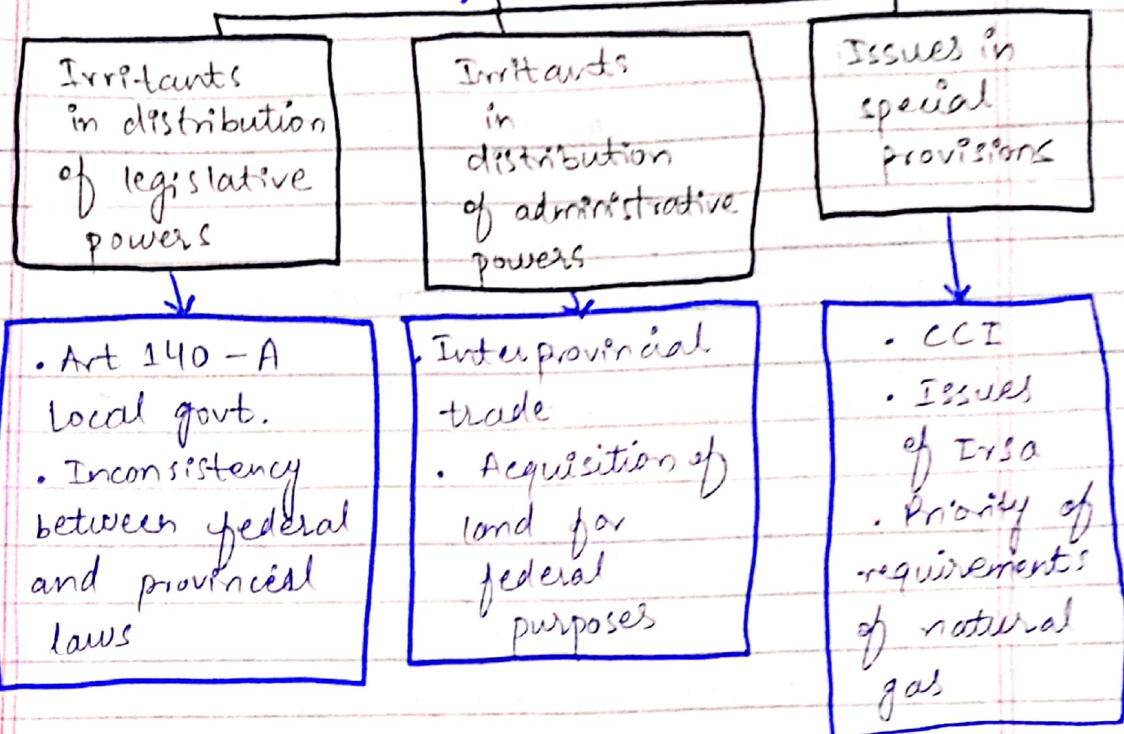 Irritants
in distribution
of legislative
powers
Irritants
in
distribution
of administrative
powers
Issues in
special
provisions
. Art 140-A
Local govt.
. Inconsistency
between federal
and provincial
laws
. Interprovincial
trade
. Acquisition of
land for
federal
purposes
. CCI
. Issues
of Irsa
. Priority of
requirements
of natural
gas